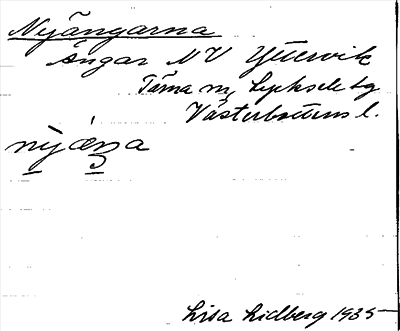 Nyängarna
Ängar NV Yttervik
Tärna sn, Lycksele lg
Västerbottens l.
nỳǽŋa
Lisa Lidberg 1935